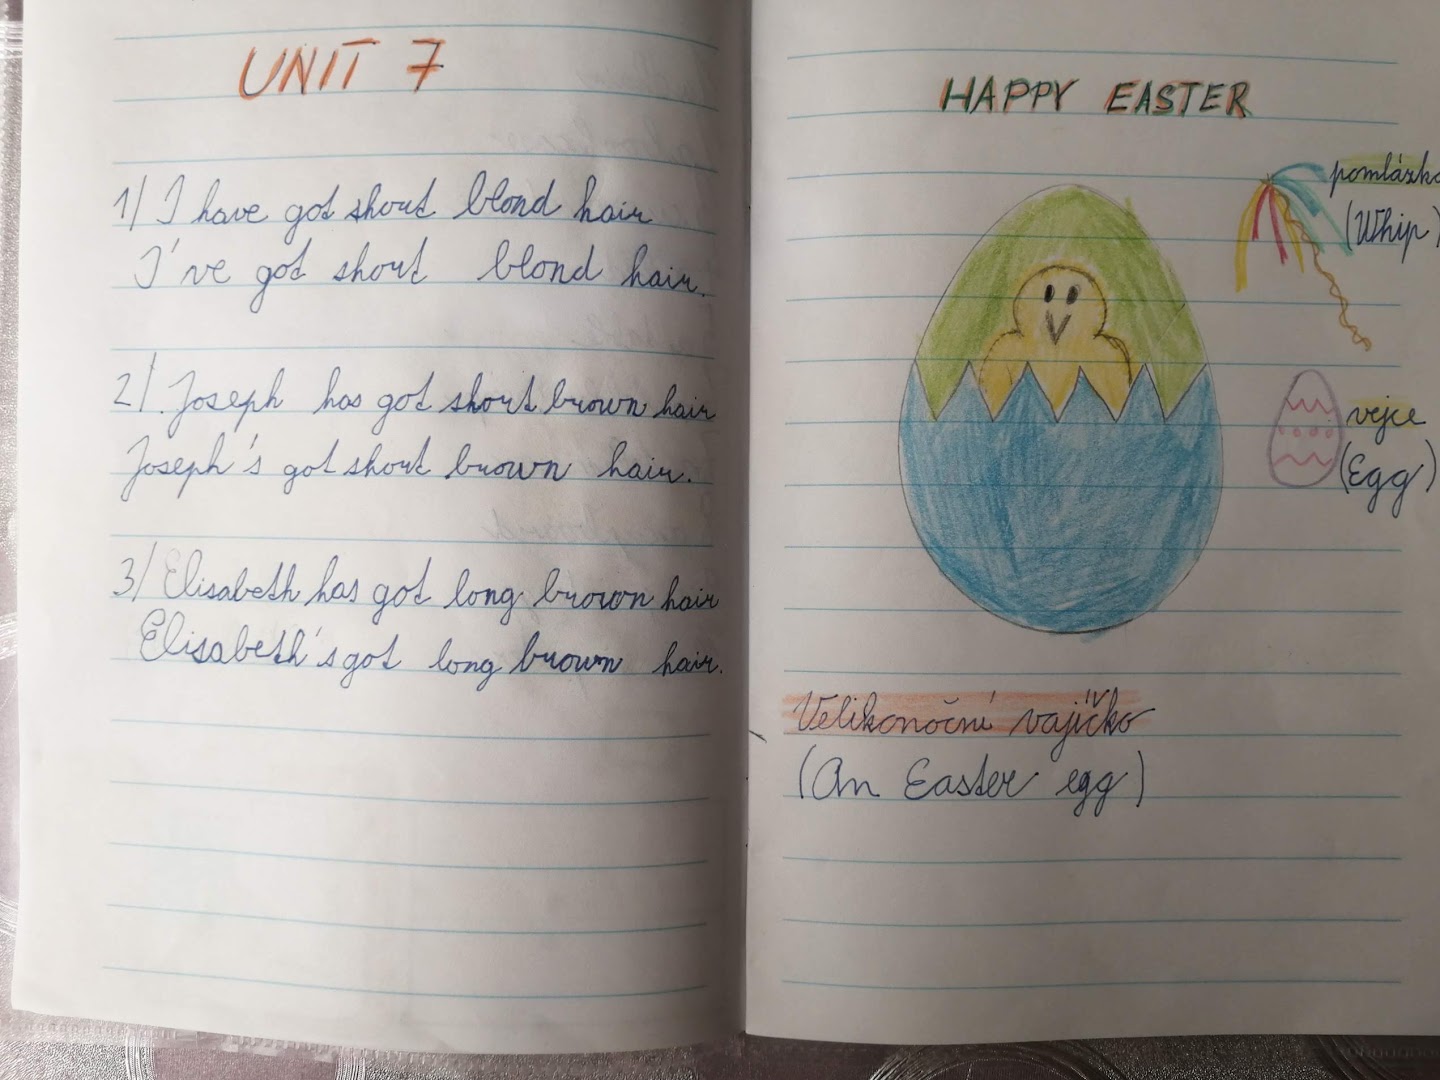 UNIT 7
1/ I have got short blond hair
I've got short blond hair.
2/. Joseph has got short brown hair
Joseph's got short brown hair.
3/ Elisabeth has got long brown hair
Elisabeth's got long brown hair.
HAPPY EASTER
pomlázka
(Whip)
vejce
(Egg)
Velikonoční vajíčko
(An Easter egg)